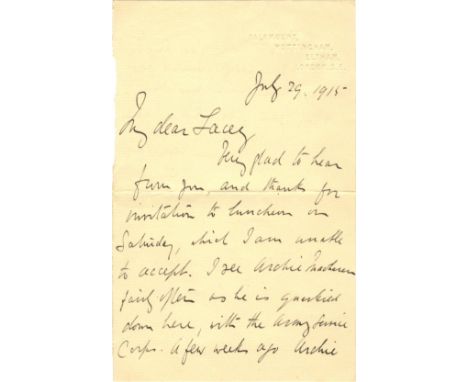 MOTTINGHAM,
ELTHAM,
July 29. 1915
My dear Lacey,
Very glad to hear
from you, and thanks for
invitation to luncheon on
Saturday, which I am unable
to accept. I see Archie
fairly often as he is quartered
down here, with the Army Service
Corps. A few weeks ago Archie